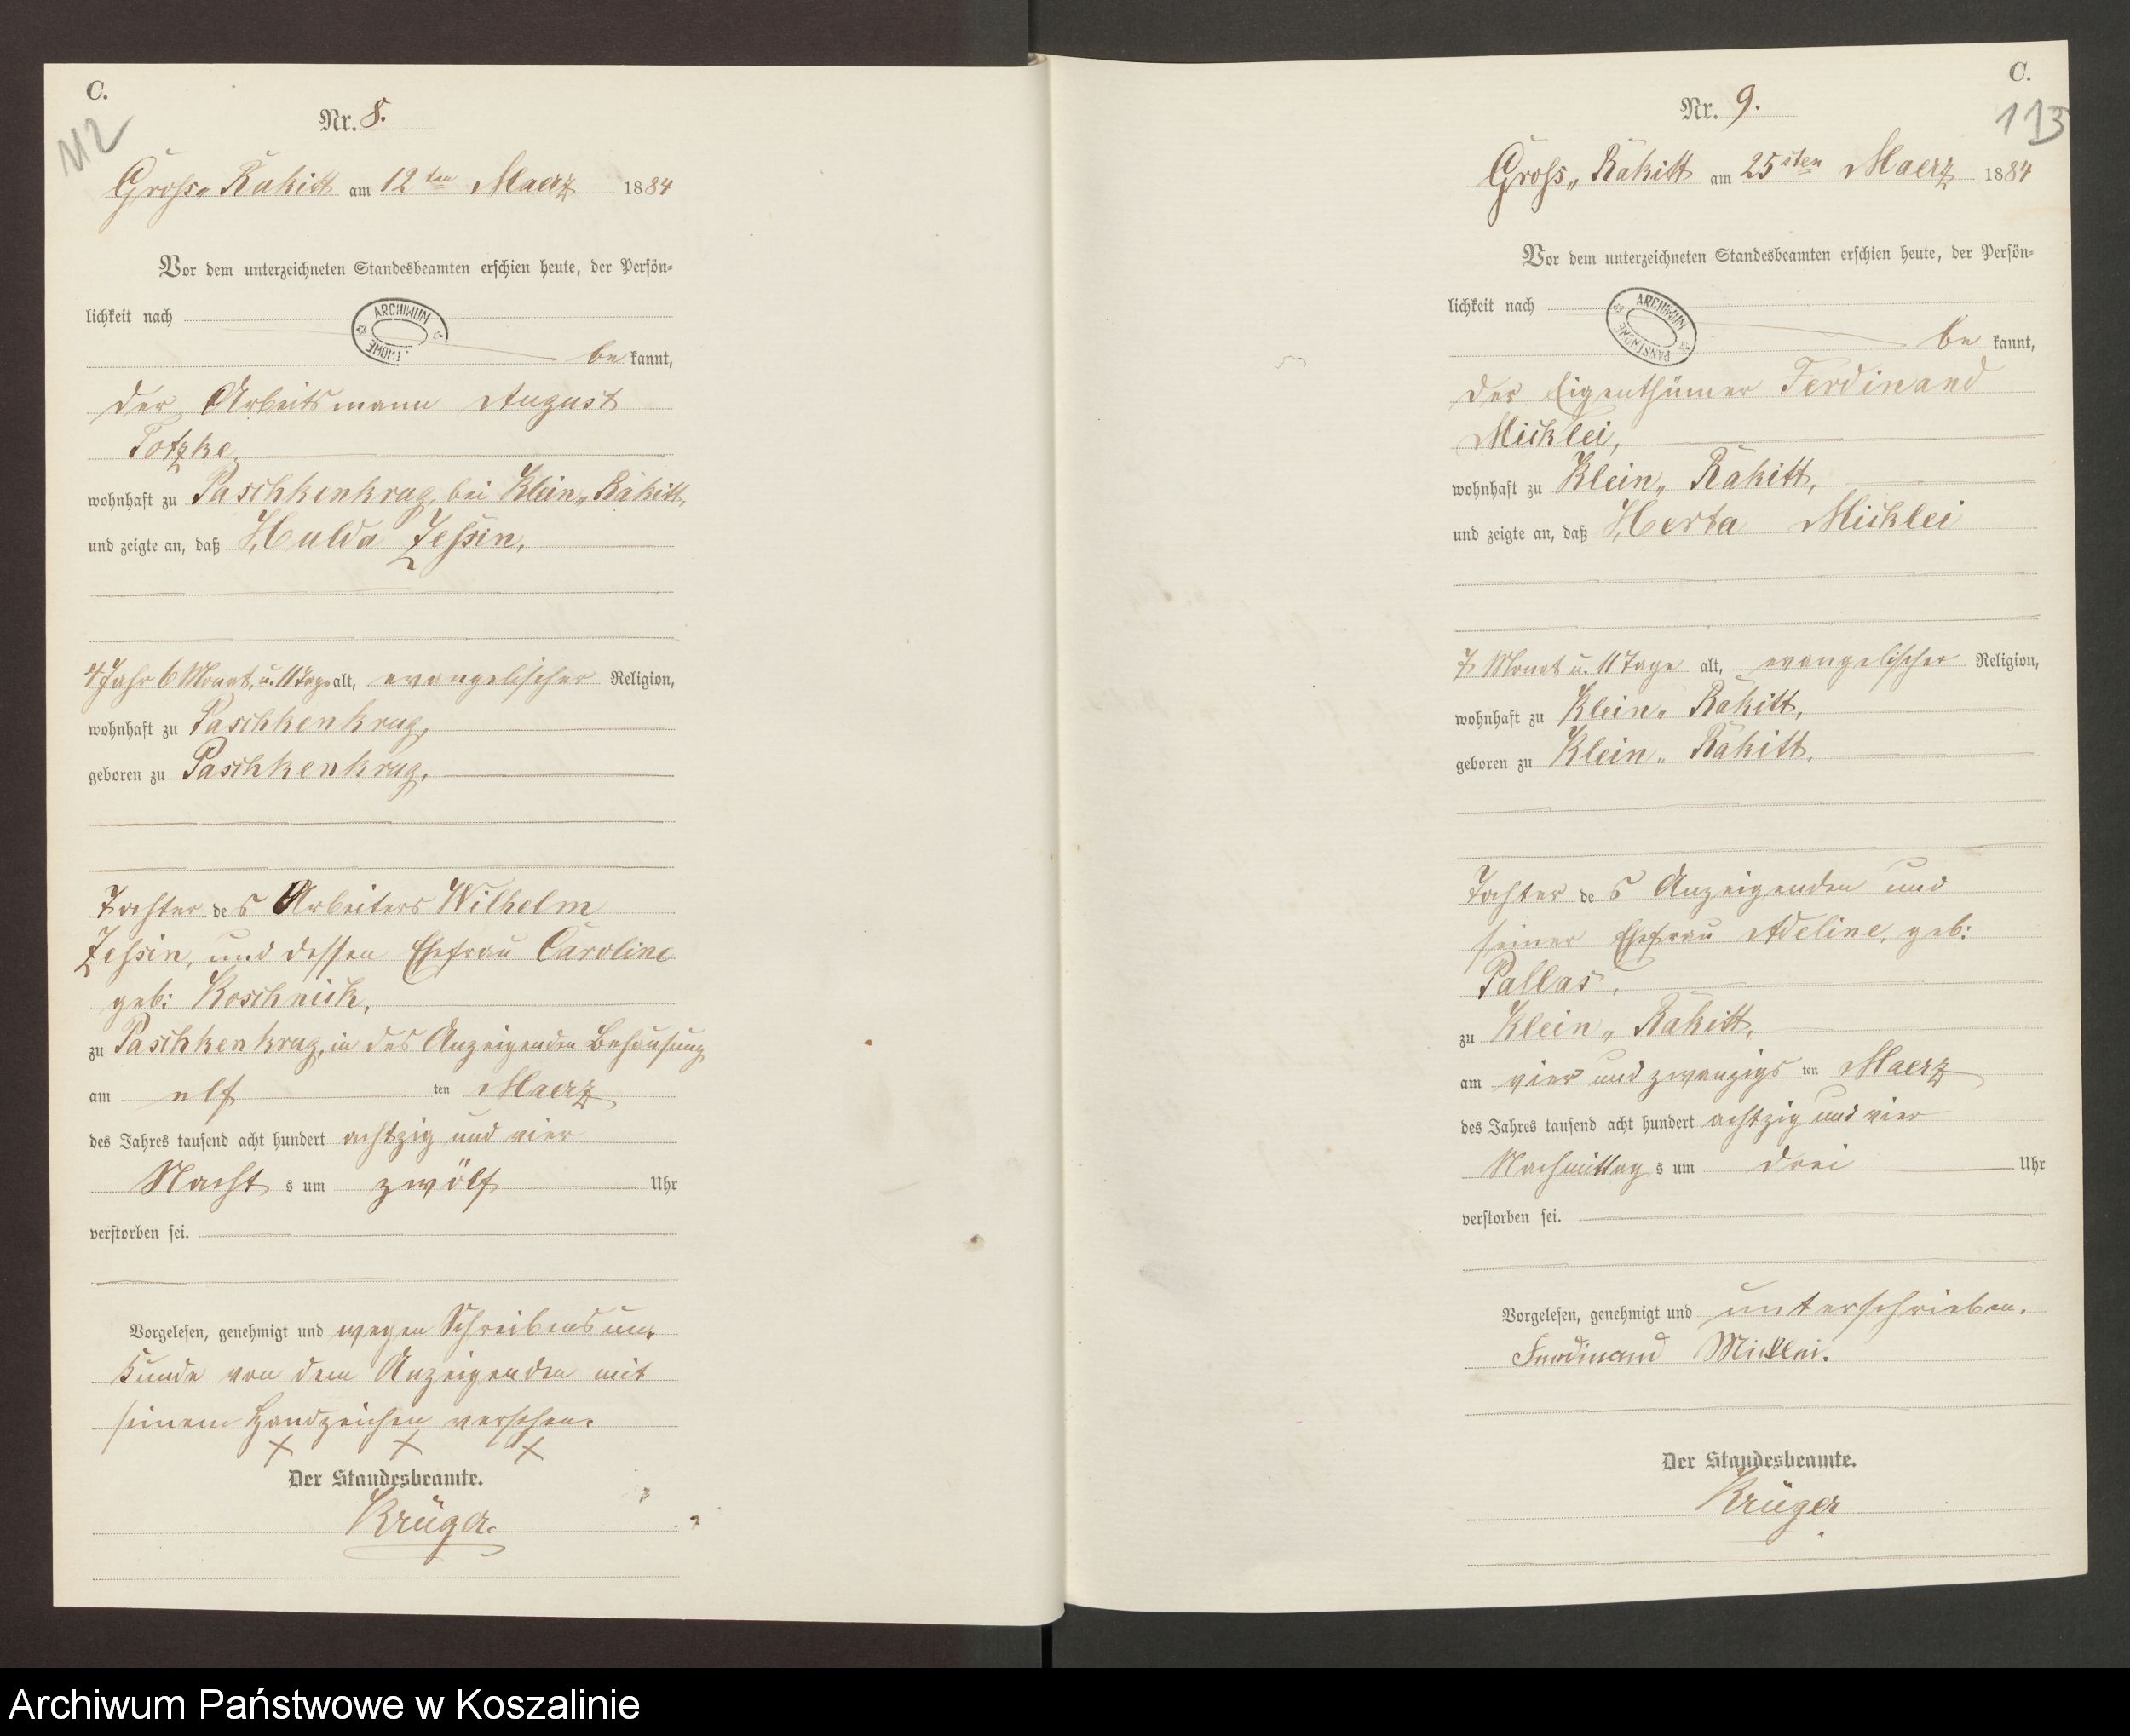 C.
112
Nr. 8.
Gross„ Rakitt am 12ten Maerz 1884
Vor dem unterzeichneten Standesbeamten erschien heute, der Persön-
lichkeit nach
ARCHIWUM
be kannt,
der Arbeitsmann August
Totzke,
wohnhaft zu Paschkenkrug, bei Klein„ Rakitt,
und zeigte an, daß Hulda Zessin,
4 Jahr 6 Monat, u. 11 Tage alt, evangelischer Religion,
wohnhaft zu Paschkenkrug,
geboren zu Paschkenkrug,
Tochter des Arbeiters Wilhelm
Zessin, und dessen Ehefrau Caroline
geb: Koschnick,
zu Paschkenkrug, in des Anzeigenden Behausung
am elf ten Maerz
des Jahres tausend acht hundert achtzig und vier
Nacht s um zwölf Uhr
verstorben sei.
Vorgelesen, genehmigt und wegen Schreibens un-
kunde von dem Anzeigenden mit
seinem Handzeichen versehen.
X X X
Der Standesbeamte.
Krüger.
C.
113
Nr. 9.
Gross„ Rakitt am 25sten Maerz 1884
Vor dem unterzeichneten Standesbeamten erschien heute, der Persön-
lichkeit nach
ARCHIWUM PAŃSTWOWE
be kannt,
der Eigenthümer Ferdinand
Micklei,
wohnhaft zu Klein„ Rakitt,
und zeigte an, daß Herta Micklei
7 Monat u. 11 Tage alt, evangelischer Religion,
wohnhaft zu Klein„ Rakitt,
geboren zu Klein„ Rakitt,
Tochter des Anzeigenden und
seiner Ehefrau Adeline, geb:
Pallas,
zu Klein„ Rakitt,
am vier und zwanzigs ten Maerz
des Jahres tausend acht hundert achtzig und vier
Nachmittag s um drei Uhr
verstorben sei.
Vorgelesen, genehmigt und unterschrieben.
Ferdinand Micklei.
Der Standesbeamte.
Krüger
Archiwum Państwowe w Koszalinie